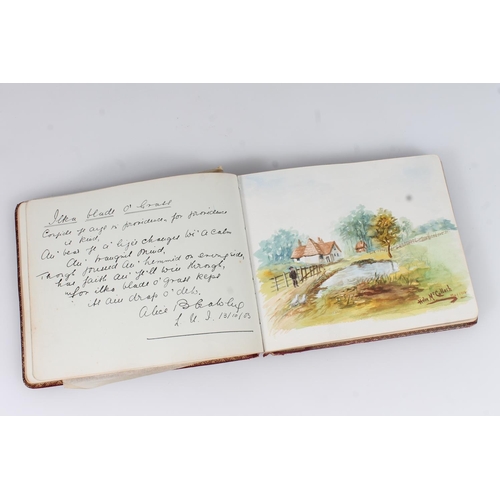 Ilka blade o' Grass
Confide ye aye in providence, for providence
is kind,
An' bear ye a' life's changes wi' a calm
An' tranquil mind,
Though pressed an' hemmed on every side,
hae faith an' ye'll win through,
for ilka blade o' grass keps
its ain drap o' dew.
Alice B
L. U. I.